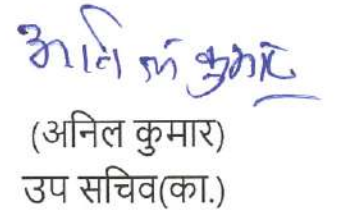 अनिल कुमार
(अनिल कुमार)
उप सचिव(का.)